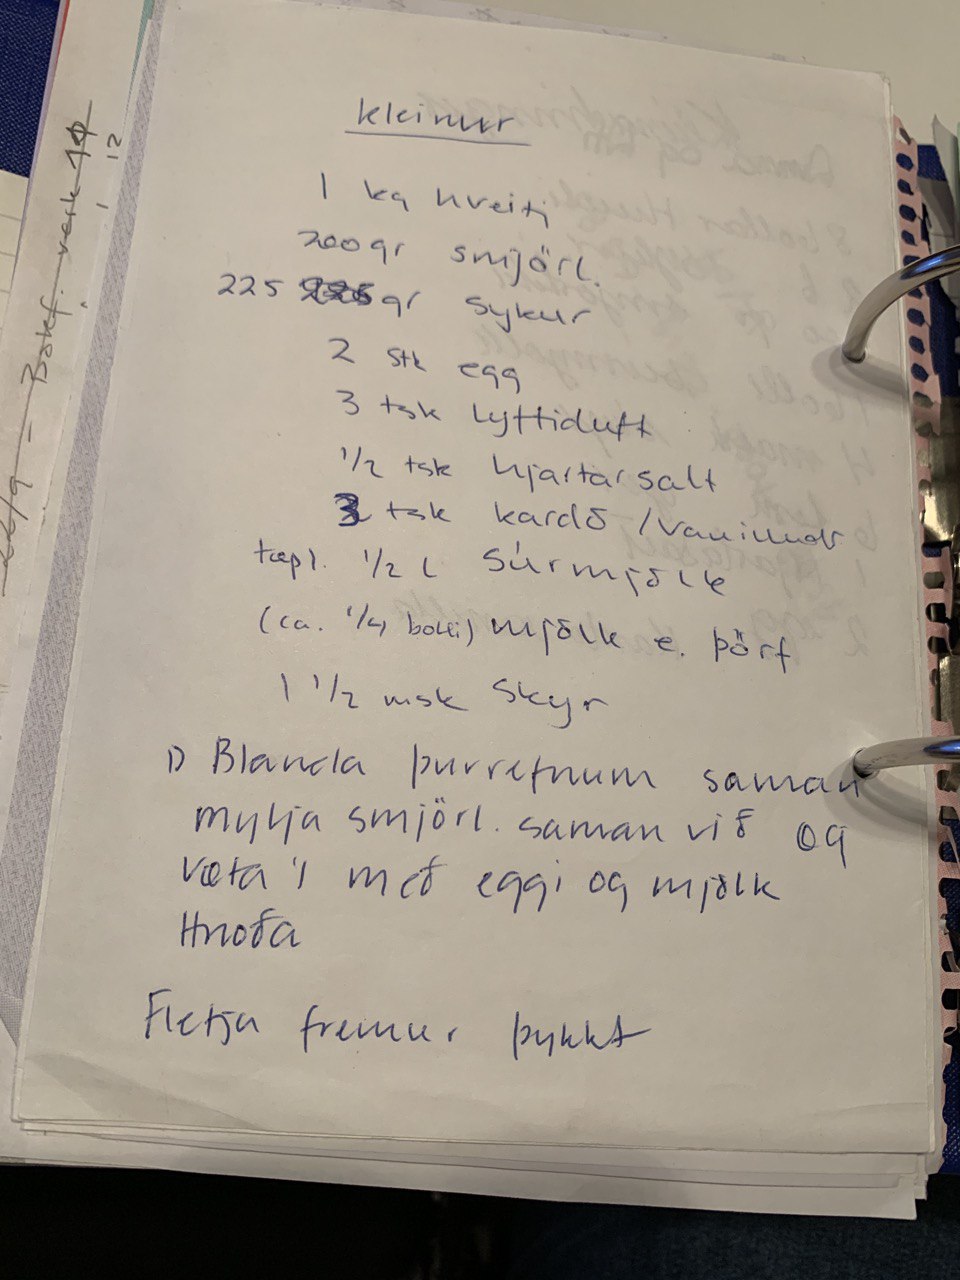 kleinur
1 kg hveiti
200 gr smjörl.
225 gr sykur
2 stk egg
3 tsk lyftiduft
1/2 tsk hjartarsalt
3 tsk kardó /vanilludr
tæpl. 1/2 l súrmjólk
(ca. 1/4 bolli) mjólk e. þörf
1 1/2 msk skyr
1) Blanda þurrefnum saman
mylja smjörl. saman við og
væta í með eggi og mjólk
Hnoða
Fletja fremur þykkt